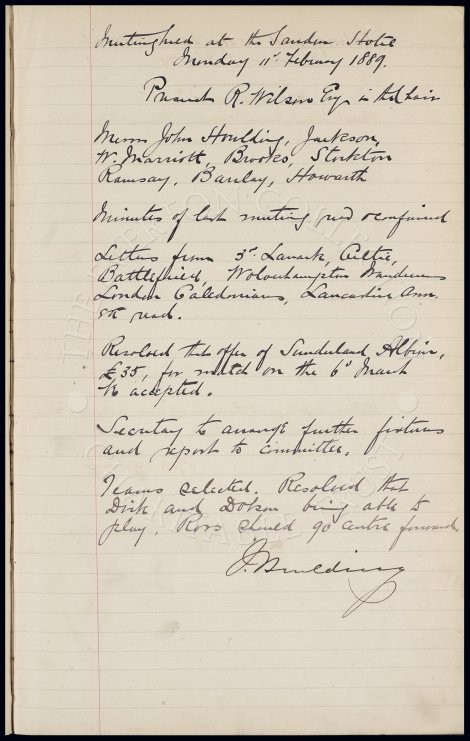 Meeting held at the Sandon Hotel
Monday 11th February 1889.
Present R. Wilson Esq in the Chair
Messrs John Houlding, Jackson,
W. Marriott, Brooks, Stockton
Ramsay, Barclay, Howarth
Minutes of last meeting read & confirmed
Letters from 3rd Lanark, Celtic,
Battlefield, Wolverhampton Wanderers
London Caledonians, Lancashire Assn.
etc read.
Resolved that offer of Sunderland Albion,
£35, for match on the 6th March
be accepted.
Secretary to arrange further fixtures
and report to committee.
Teams selected. Resolved that
Dick and Dobson being able to
play. Ross should go centre forward
J. Houlding
THE EVERTON COLLECTION
CHARITABLE TRUST